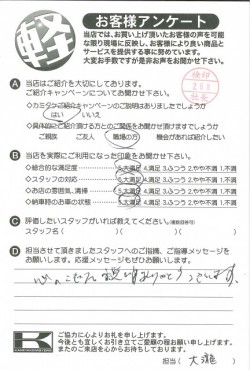 軽
お客様アンケート
当店では、お買い上げ頂いたお客様の声を可能
な限り現場に反映し、お客様により良い商品と
サービスを提供する事に努めています。
大変お手数ですが是非お声をお聞かせ下さい。
A 当店はご紹介を大切にしております。
ご紹介キャンペーンについてお聞かせ下さい。
はい いいえ
ご親族 ご友人 職場の方 機会があれば紹介したい
B 当店を実際にご利用になった印象をお聞かせ下さい。
・総合的な満足度 5.大満足 4.満足 3.ふつう 2.やや不満 1.不満
・スタッフの対応 5.大満足 4.満足 3.ふつう 2.やや不満 1.不満
・お店の雰囲気、清掃 5.大満足 4.満足 3.ふつう 2.やや不満 1.不満
・納車時のお車の状態 5.大満足 4.満足 3.ふつう 2.やや不満 1.不満
C 評価したいスタッフがいれば教えてください。(複数回答可)
スタッフ名( )( )
D 担当させて頂きましたスタッフへのご指摘、ご指導メッセージを
お願いします。応援メッセージもぜひお願いします。
ありがとうございます。
K
ご協力に心よりお礼を申し上げます。
今後とも宜しくお引き立てご愛顧の程お願い申し上げます。
またのご来店を心からお待ちしております。
担当( 大滝 )